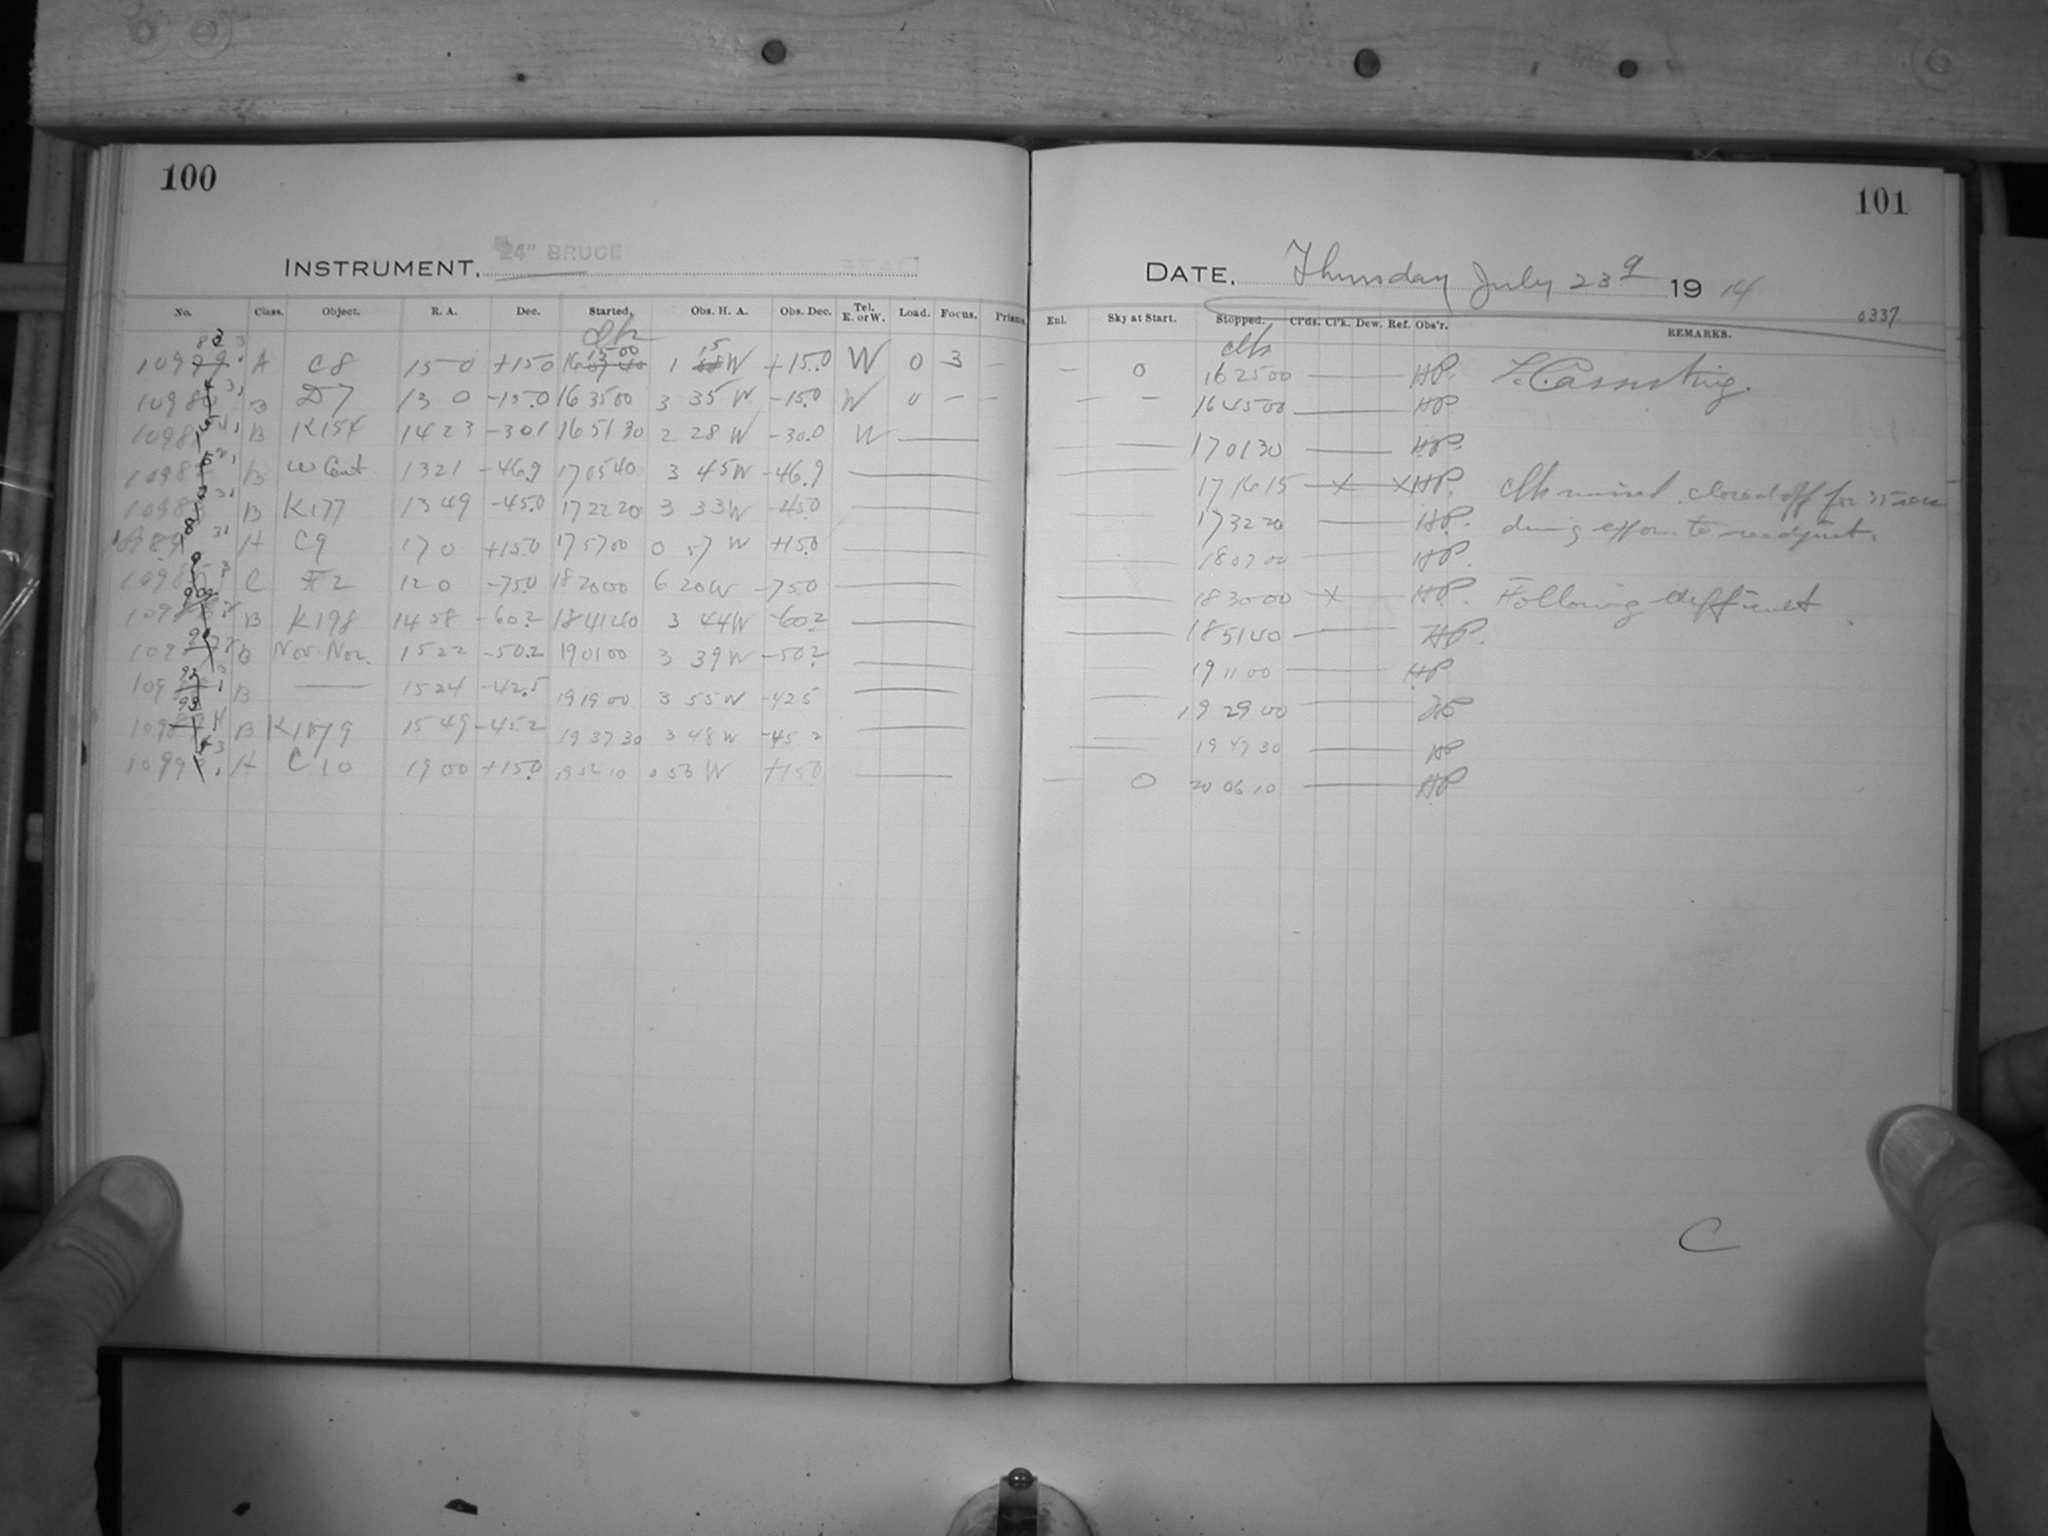 100
INSTRUMENT. 24" BRUCE
No. Class. Object. R. A. Dec. Started. Obs. H. A. Obs. Dec. Tel. E. or W. Load. Focus. Prisms
A C8 15 0 +15.0 16 15 00 1 15 W +15.0 W 0 3 —
B D7 13 0 -15.0 16 35 00 3 35 W -15.0 W 0 — —
B K154 14 23 -30.1 16 51 30 2 28 W -30.0 W
B w Cent. 13 21 -46.9 17 05 40 3 45 W -46.9
B K177 13 49 -45.0 17 22 20 3 33 W -45.0
A C9 17 0 +15.0 17 57 00 0 57 W +15.0
C F2 12 0 -75.0 18 20 00 6 20 W -75.0
B K198 14 58 -60.2 18 41 40 3 44 W -60.2
B Nov Nor. 15 22 -50.2 19 01 00 3 39 W -50.2
B — 15 24 -42.5 19 19 00 3 55 W -42.5
B 15 49 -45.2 19 37 30 3 48 W -45.2
A C10 19 00 +15.0 19 56 10 0 56 W +15.0
101
DATE. Thursday July 23d 1914
0337
Exl. Sky at Start. Stopped. Cl'ds. Cl'k. Dew. Ref. Obs'r. REMARKS.
— 0 16 25 00 — HP. L.C. assisting.
— — — 16 45 00 — HP
— 17 01 30 — HP.
— 17 16 15 — X — X HP. Clk missed. closed off for
— 17 32 20 — HP. during effort to readjust.
— 18 07 00 — HP.
— 18 30 00 X — HP. Following difficult.
— 18 51 40 — HP.
19 11 00 — HP
— 19 29 00 — HP
— 19 47 30 — HP
— 0 20 06 10 — HP
C